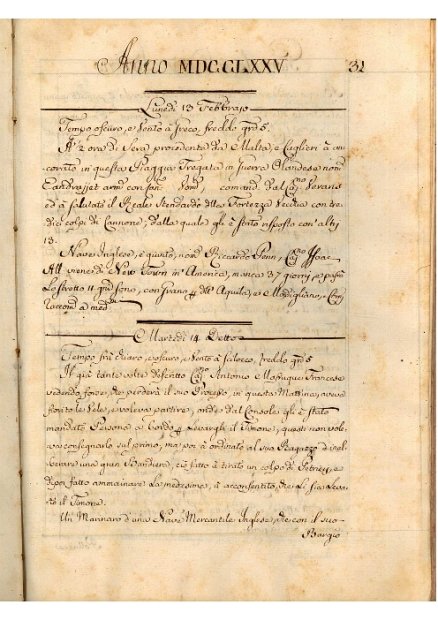 Anno MDCCLXXV 31
Lunedì 13 Febbrajo
Tempo oscuro, e Vento à Greco, freddo grã 5.
A' 2 ora di Sera procedente da Malta, e Caglieri à an
corato in questa Piaggia Fregata in Guerra Olandese nom
con Com. comand. dal
ed à salutato il Reale Stendardo della Fortezza Vecchia con tre
dici colpi di Cannone, dalla quale gli è stato risposto con altri
13.
Nave Inglese, è giunto, nom Riccardo Penn, Isac
All viene di New Town in America, manca 37 giorni, e passò
Lo stretto 11 sono, con Grano p de Aquila, e
a med
Martedì 14 Detto
Tempo frà chiaro, e oscuro, e Vento à scilocco, freddo grã 5
Il già tante volte descritto Antonio Francese
vedendo, forse, che perderà il suo Processo, in questa Mattina, aveva
le Vele, e voleva partire, onde dal Console gli è stato
mandato Persone à Bordo p Levargli il Timone, questi non vole
va consegnarlo sul primo, ma poi à ordinato al suo Ragazzo d'inal
berare una gran Bandiera, e à fatto à tirato un colpo di e
di poi fatto ammainare la medesima, à acconsentito, che gli sia Leva
to il Timone.
Un Marinaro d'una Nave Mercantile Inglese, che con il suo
Bargio